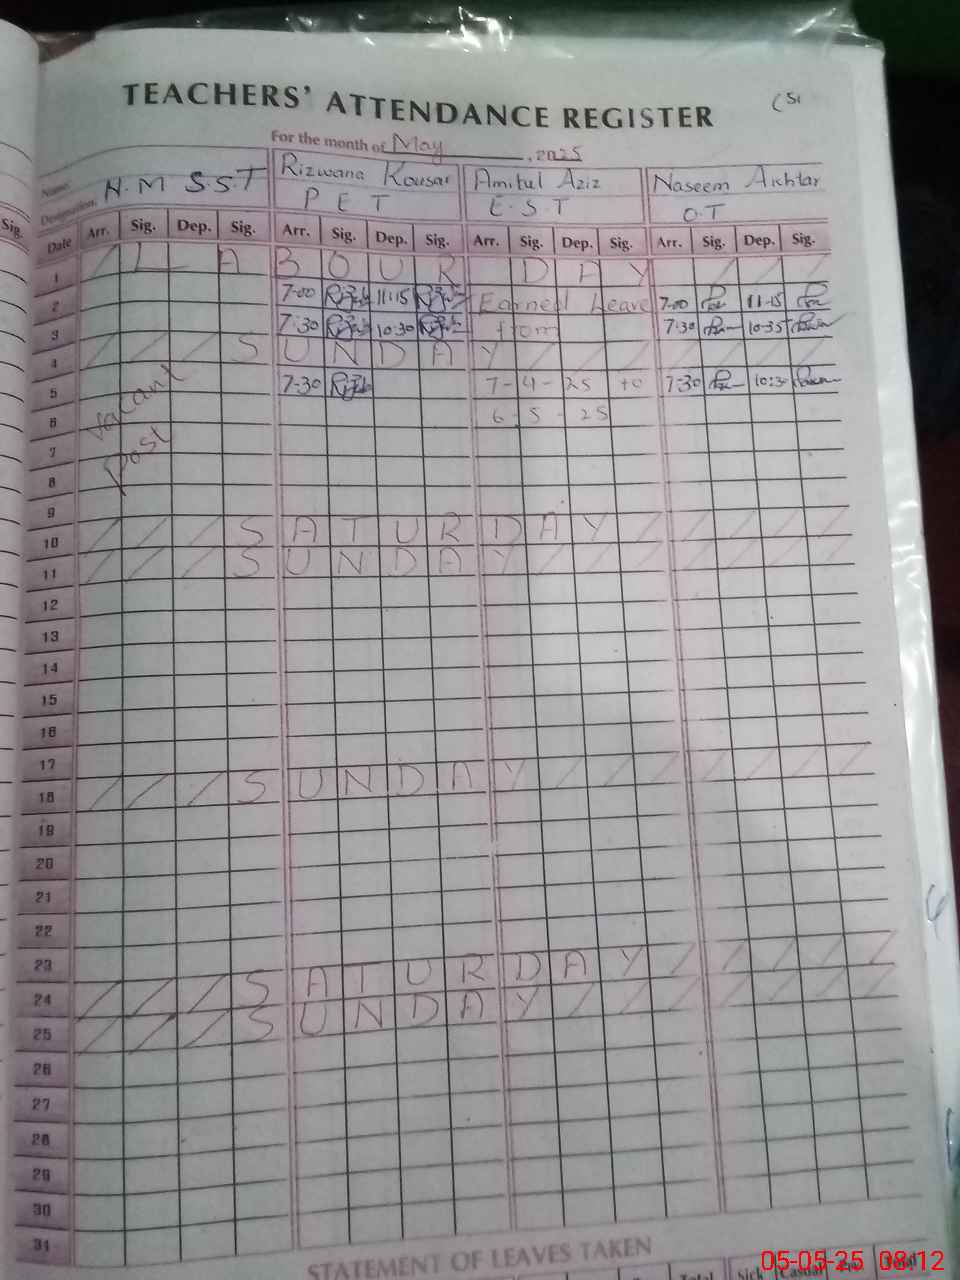 TEACHERS' ATTENDANCE REGISTER
For the month of May, 2025
Name: Rizwana Kousar Amitul Aziz Naseem Akhtar
Designation: H.M S.S.T P E T E.S.T O.T
Sig.
Date Arr. Sig. Dep. Sig. Arr. Sig. Dep. Sig. Arr. Sig. Dep. Sig. Arr. Sig. Dep. Sig.
1 LABOUR DAY
2 7-00 11-15 Earned Leave 7-00 11-15
3 7-30 10-30 from 7-30 10-35
4 SUNDAY
5 7-30 7-4-25 to 7-30 10:30
6 6-5-25
vacant
post
7
8
9
10 SATURDAY
11 SUNDAY
12
13
14
15
16
17
18 SUNDAY
19
20
21
22
23
24 SATURDAY
25 SUNDAY
26
27
28
29
30
31
STATEMENT OF LEAVES TAKEN
Total Sick Casual Total
05-05-25 08:12